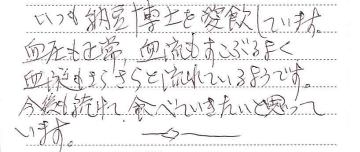 いつも納豆博士を愛飲しています。
血圧も正常、血流もすこぶるよく
血液もさらさらと流れているようです。
今後も続けて食べていきたいと思って
います。